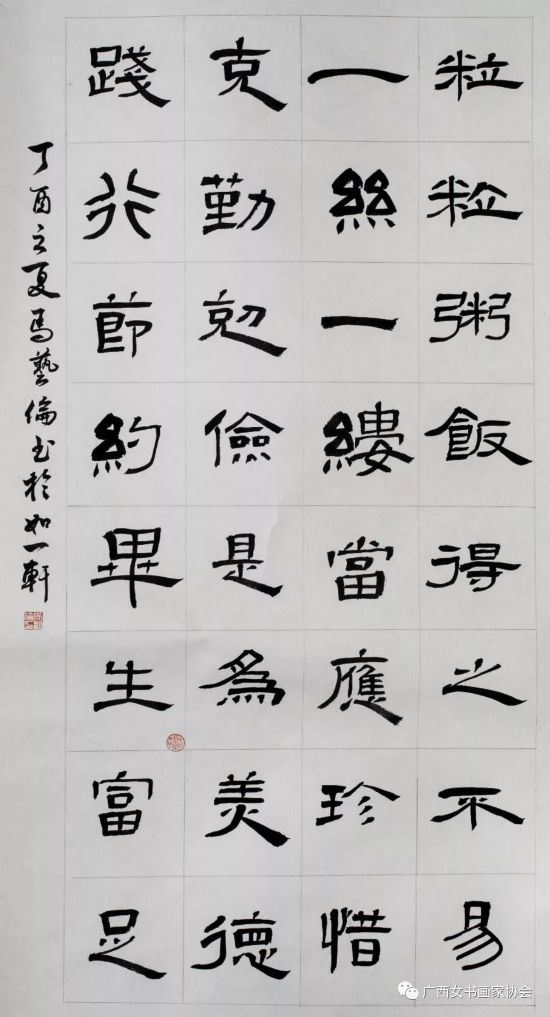 粒粒粥飯得之不易
一絲一縷當應珍惜
克勤剋儉是為美德
踐行節約畢生富足
丁酉之夏馬藝倫書於如一軒
广西女书画家协会